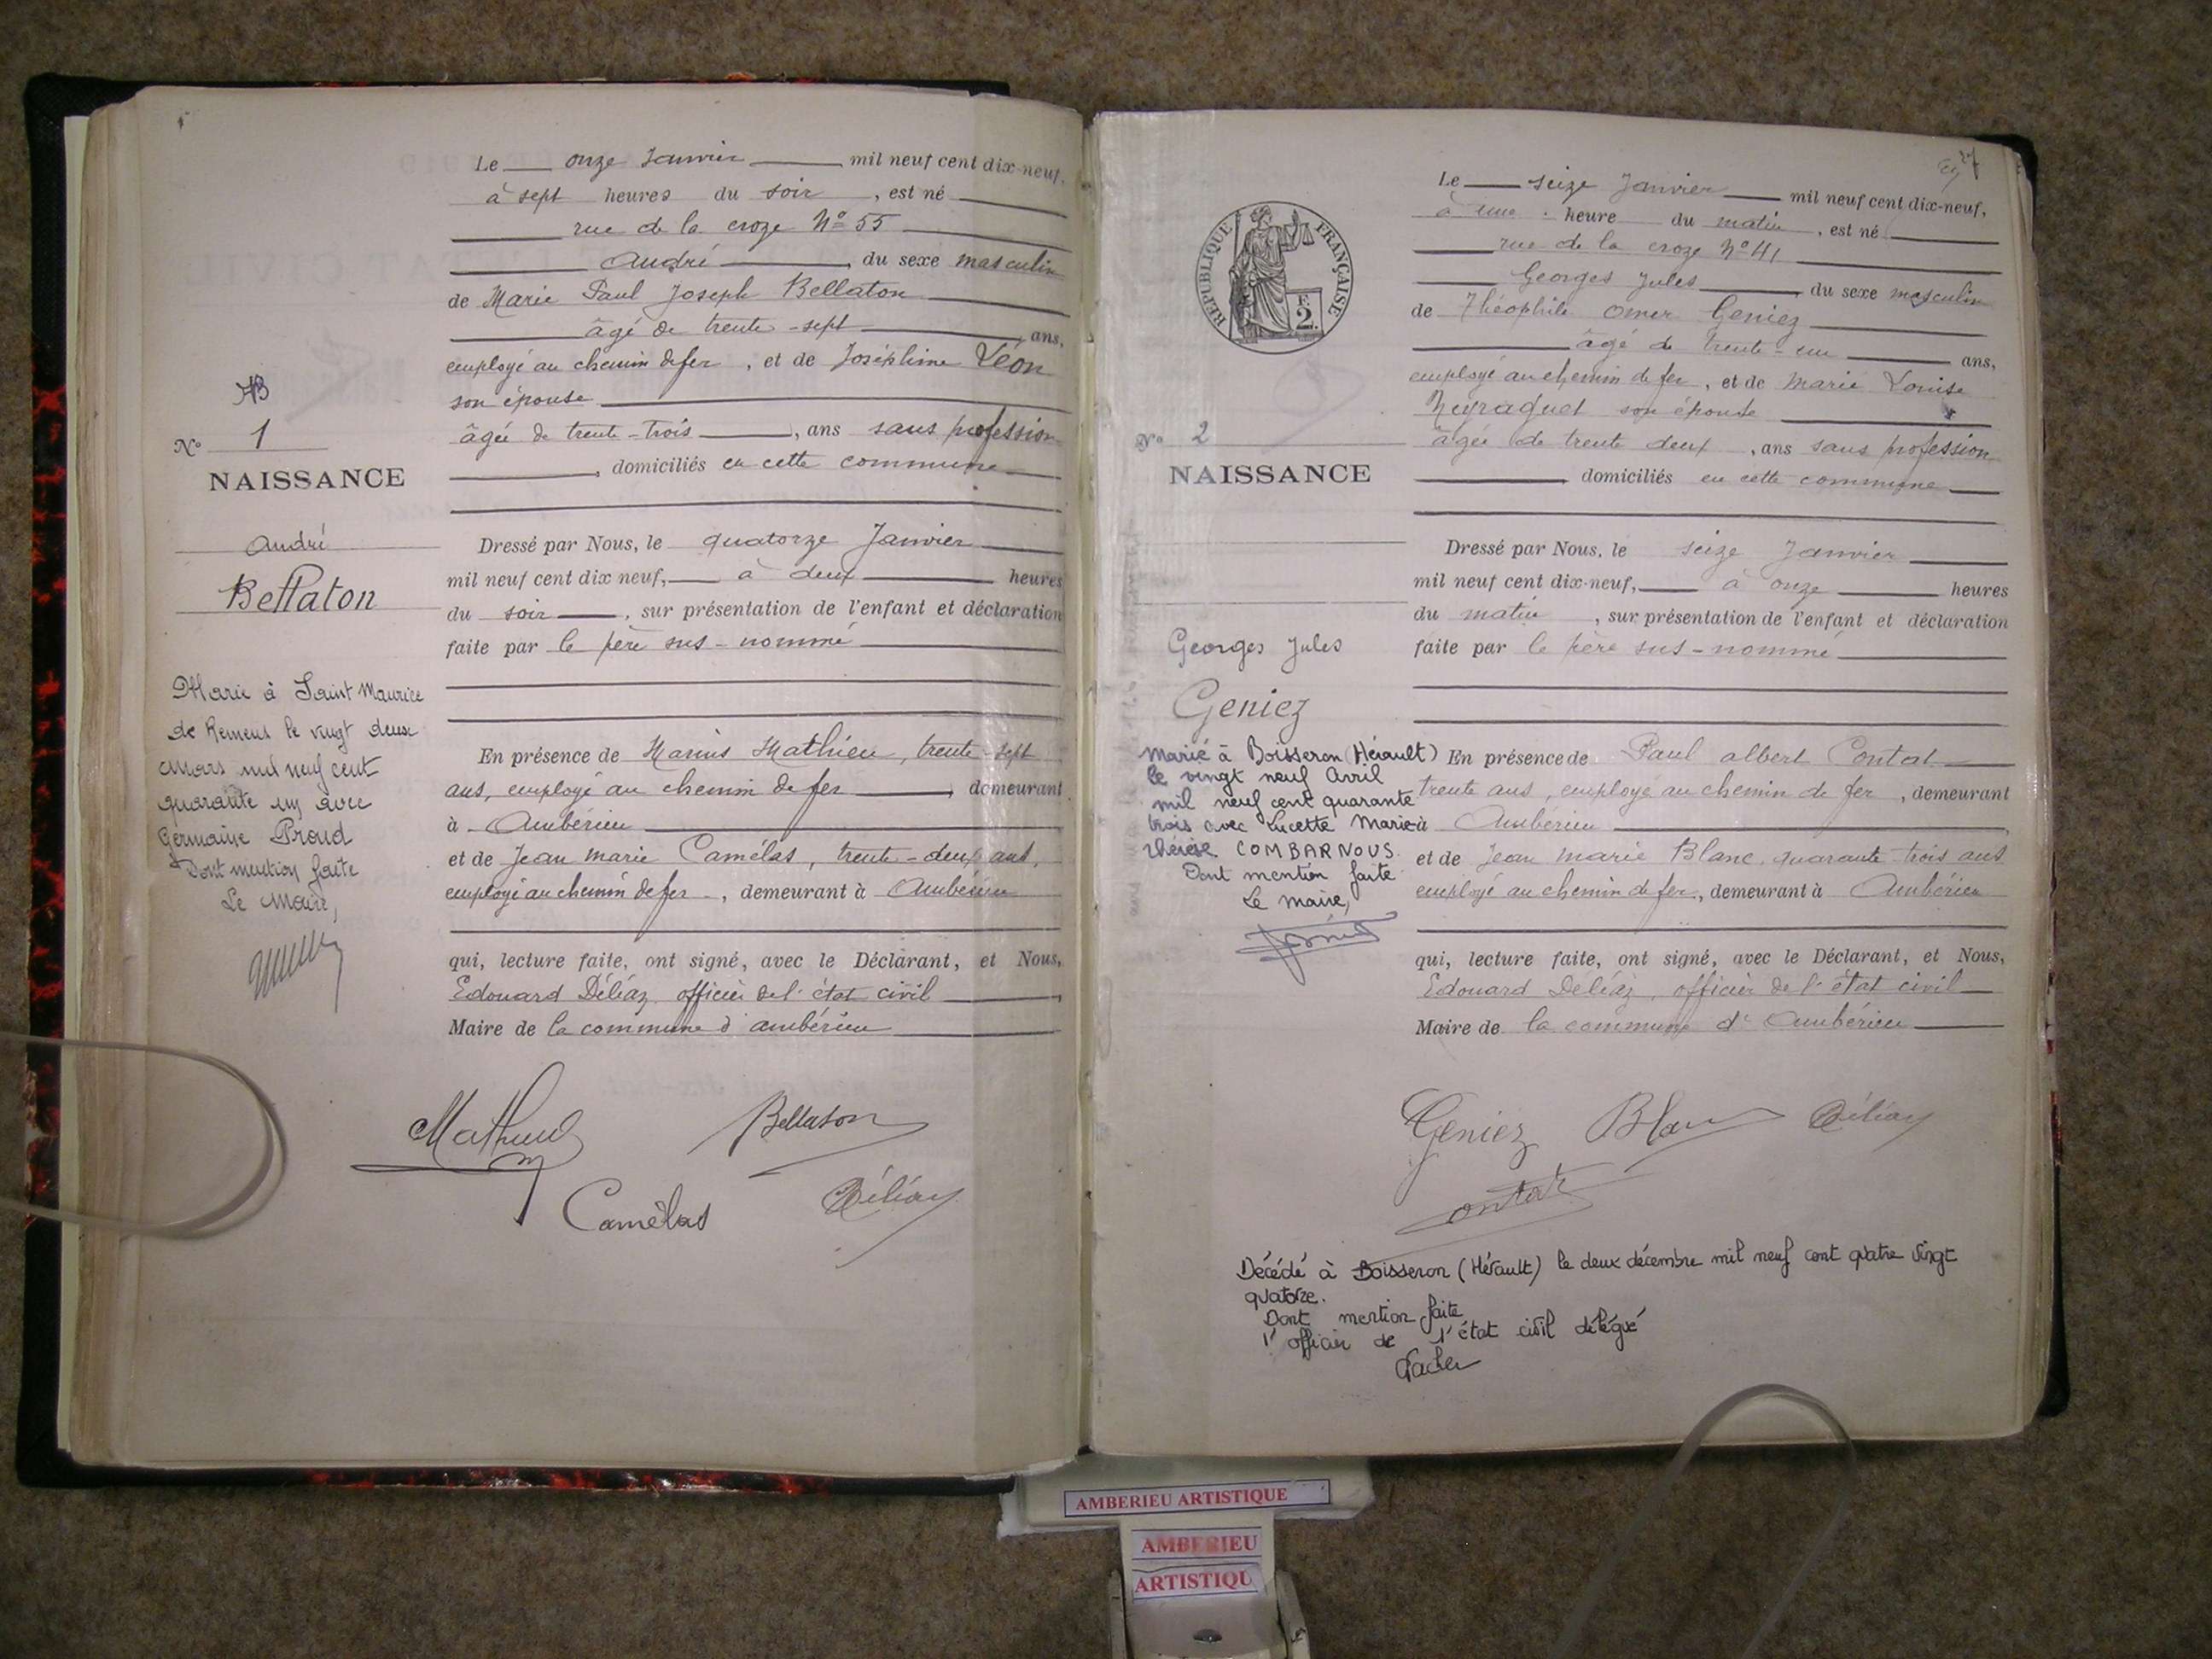 Le onze Janvier mil neuf cent dix-neuf,
à sept heures du soir, est né
rue de la croze N° 55
André du sexe masculin
de Marie Paul Joseph Bellaton
âgé de trente-sept ans,
employé au chemin de fer, et de Joséphine Léon
son épouse
âgée de trente-trois, ans sans profession
domiciliés en cette commune
Dressé par Nous, le quatorze Janvier
mil neuf cent dix neuf, à deux heures
du soir, sur présentation de l'enfant et déclaration
faite par le père sus-nommé
En présence de Marius Mathieu, trente-sept
ans, employé au chemin de fer, domeurant
à Ambérieu
et de Jean Marie Camélas, trente-deux ans,
employé au chemin de fer, demeurant à Ambérieu
qui, lecture faite, ont signé, avec le Déclarant, et Nous,
Edouard Déliaz, officier de l'état civil
Maire de la commune d'ambérieu
N° 1
NAISSANCE
André
Bellaton
Marié à Saint Maurice
de Remens le vingt deux
Mars mil neuf cent
quarante un avec
Germaine Proud
Dont mention faite
Le Maire,
Mathieu
Bellaton
Camélas
Déliaz
27
Le seize Janvier mil neuf cent dix-neuf,
à une heure du matin, est né
rue de la croze N° 41
Georges Jules du sexe masculin
de Théophile Omer Geniez
âgé de trente-un ans,
employé au chemin de fer, et de Marie Louise
Neyraguet son épouse
âgée de trente deux, ans sans profession
domiciliés en cette commune
Dressé par Nous, le seize Janvier
mil neuf cent dix-neuf, à onze heures
du matin, sur présentation de l'enfant et déclaration
faite par le père sus-nommé
En présence de Paul albert Contat
trente ans, employé au chemin de fer, demeurant
à Ambérieu
et de Jean Marie Blanc, quarante-trois ans
employé au chemin de fer, demeurant à Ambérieu
qui, lecture faite, ont signé, avec le Déclarant, et Nous,
Edouard Déliaz, officier de l'état civil
Maire de la commune d'Ambérieu
RÉPUBLIQUE FRANÇAISE
F.
2.
N° 2
NAISSANCE
Georges Jules
Geniez
Marié à Boisseron (Hérault)
le vingt neuf Avril
mil neuf cent quarante
trois avec Lucette Marie
thérèse COMBARNOUS.
Dont mention faite
Le maire,
Geniez
Blanc
Déliaz
Contat
Décédé à Boisseron (Hérault) le deux décembre mil neuf cent quatre vingt
quatorze.
Dont mention faite
l'officier de l'état civil délégué
AMBERIEU ARTISTIQUE
AMBERIEU
ARTISTIQU